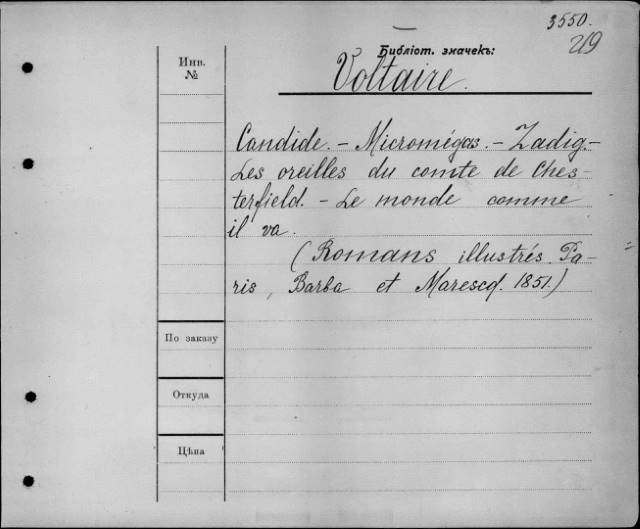 3550.
219
Библіот. значекъ:
Инв.
№
Voltaire.
Candide. - Micromégas. - Zadig. -
Les oreilles du comte de Ches-
terfield. - Le monde comme
il va.
(Romans illustrés. Pa-
ris, Barba et Marescq. 1851.)
По заказу
Откуда
Цѣна